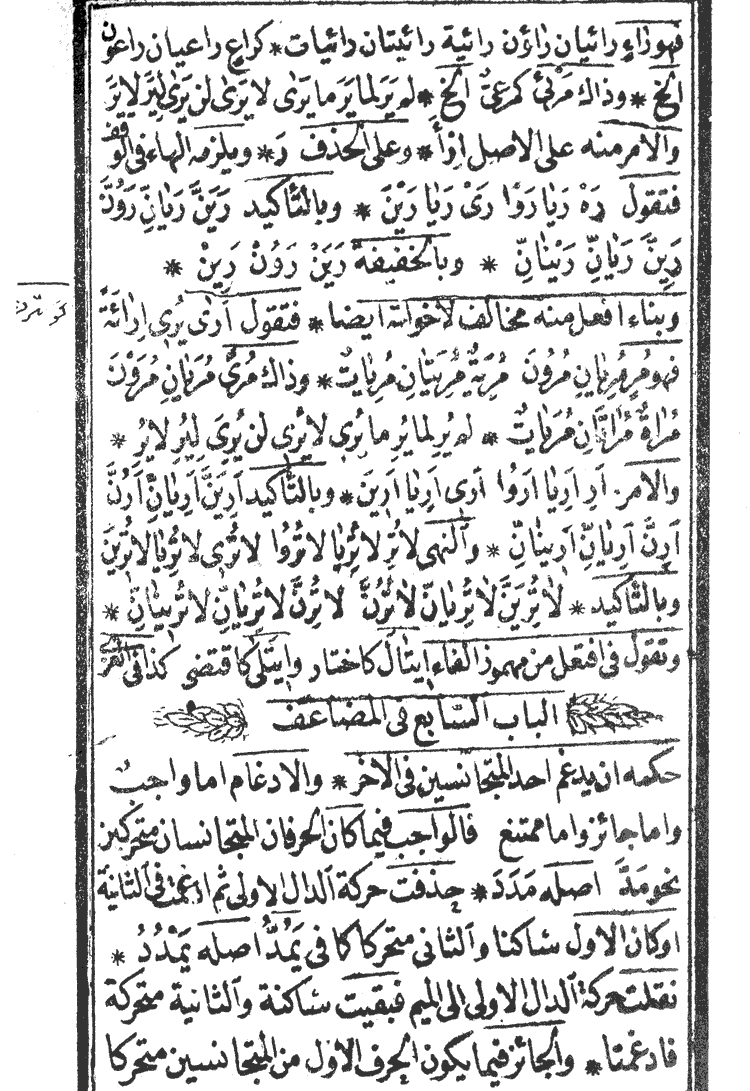 فهو راءٍ رائيان راؤن رائية رائيتان رائيات * كراعٍ راعيان راعون
الخ * وذاك مَرْئِيٌّ كمرعىٌّ الخ * لم يَرَ لما يَرَ ما يَرٰى لا يَرٰى لن يَرٰى لِيَرَ لا يَرَ
والامر منه على الاصل اِرْأَ * وعلى الحذف رَ * ويلزمه الهاء فى الوقف
فتقول رَهْ رَيا رَوْا رَىْ رَيا رَيْنَ * وبالتأكيد رَيَنَّ رَيانِّ رَوُنَّ
رَيِنَّ رَيانِّ رَيْنانِّ * وبالخفيفة رَيَنْ رَوُنْ رَيِنْ *
وبناء افعل منه مخالف لاخواته ايضا * فتقول اَرٰى يُرِى اِرائَةً
فهو مُرٍ مُرِيانِ مُرُونَ مُرِيَةٌ مُرِيَتانِ مُرِياتٌ * وذاك مُرًى مُرَيانِ مُرَوْنَ
مُراةٌ مُراتانِ مُرَياتٌ * لم يُرِ لما يُرِ ما يُرِى لا يُرِى لن يُرِىَ لِيُرِ لا يُرِ *
والامر اَرِ اَرِيا اَرُوا اَرِى اَرِيا اَرِينَ * وبالتأكيد اَرِيَنَّ اَرِيانِّ اَرُنَّ
اَرِنَّ اَرِيانِّ اَرِينانِّ * والنهى لا تُرِ لا تُرِيا لا تُرُوا لا تُرِى لا تُرِيا لا تُرِينَ
وبالتأكيد * لا تُرِيَنَّ لا تُرِيانِّ لا تُرُنَّ لا تُرِنَّ لا تُرِيانِّ لا تُرِينانِّ *
وتقول فى افتعل من مهموز الفاء ايتال كاختار وايتلى كاقتضى كذا فى العزى
الباب السابع فى المضاعف
حكمه ان يدغم احد المتجانسين فى الآخر * والادغام اما واجب
واما جائز واما ممتنع فالواجب فيما كان الحرفان المتجانسان متحركين
نحو مَدَّ اصله مَدَدَ * حذفت حركة الدال الاولى ثم ادغمت فى الثانية
اوكان الاول ساكنا والثانى متحركا كما فى يَمُدُّ اصله يَمْدُدُ *
نقلت حركة الدال الاولى الى الميم فبقيت ساكنة والثانية متحركة
فادغمنا * والجائز فيما يكون الحرف الاول من المتجانسين متحركا